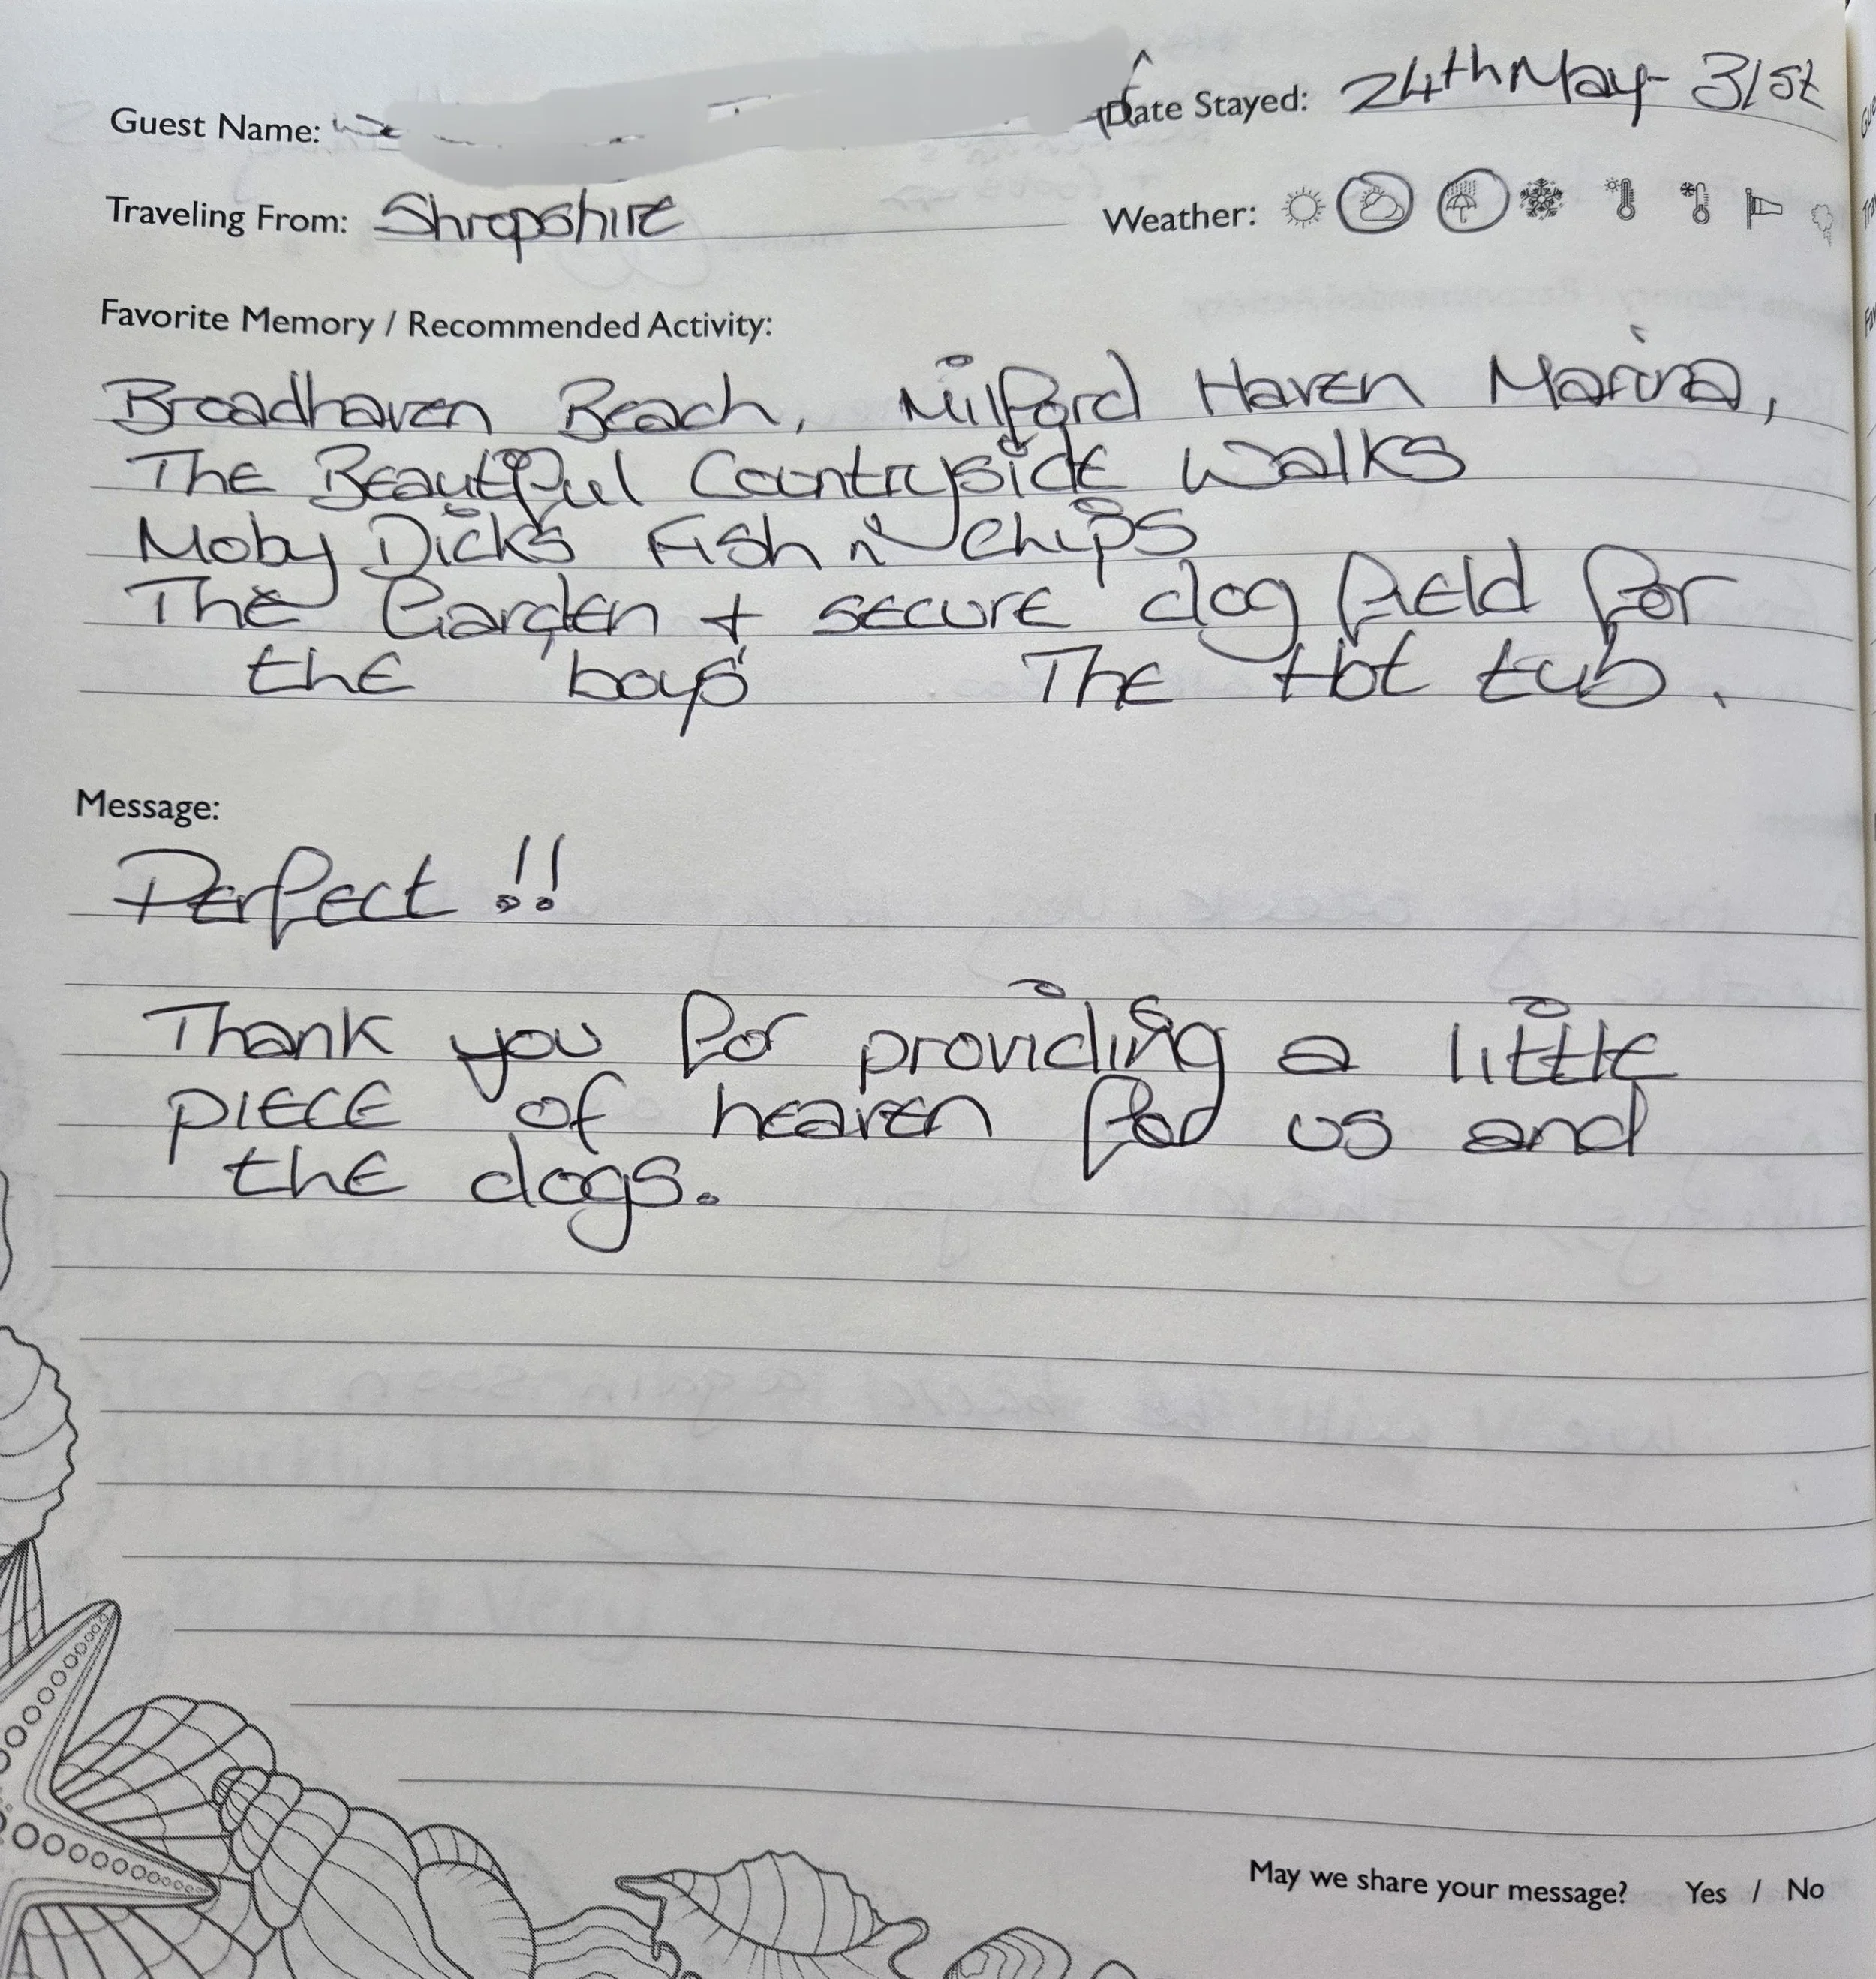 Guest Name:
Date Stayed: 24th May - 31st
Traveling From: Shropshire
Weather:
Favorite Memory / Recommended Activity:
Broadhaven Beach, Milford Haven Marina,
The Beautiful Countryside Walks
Moby Dicks Fish n' Chips
The Garden + secure dog field for
the 'boys' The Hot tub.
Message:
Perfect!!
Thank you for providing a little
piece of heaven for us and
the dogs.
May we share your message? Yes / No